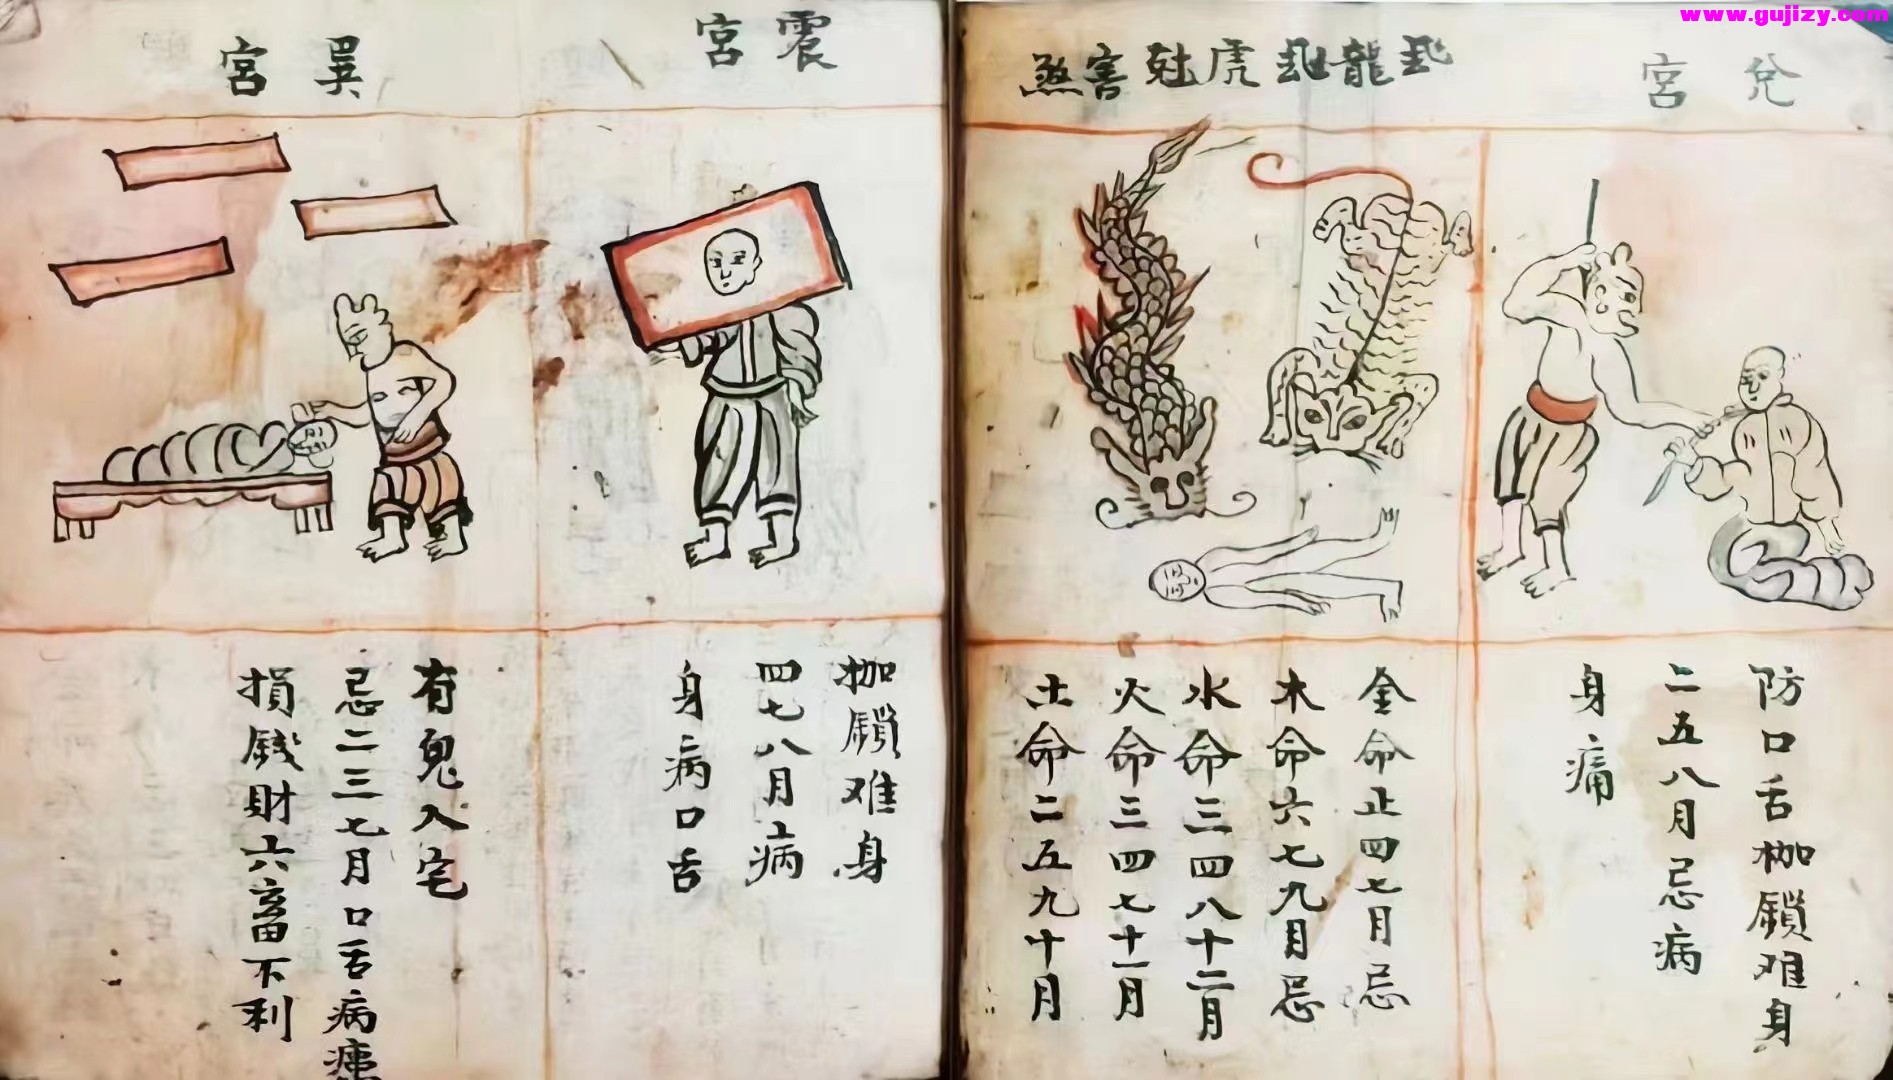 www.gujizy.com
兌宮
防口舌枷鎖难身
二五八月忌病
身痛
龍虎尅害煞
金命正四七月忌
木命六七九月忌
水命三四八十二月
火命三四七十一月
土命二五九十月
震宮
枷鎖难身
四七八月病
身病口舌
巽宮
有鬼入宅
忌二三七月口舌病
損錢財六畜不利